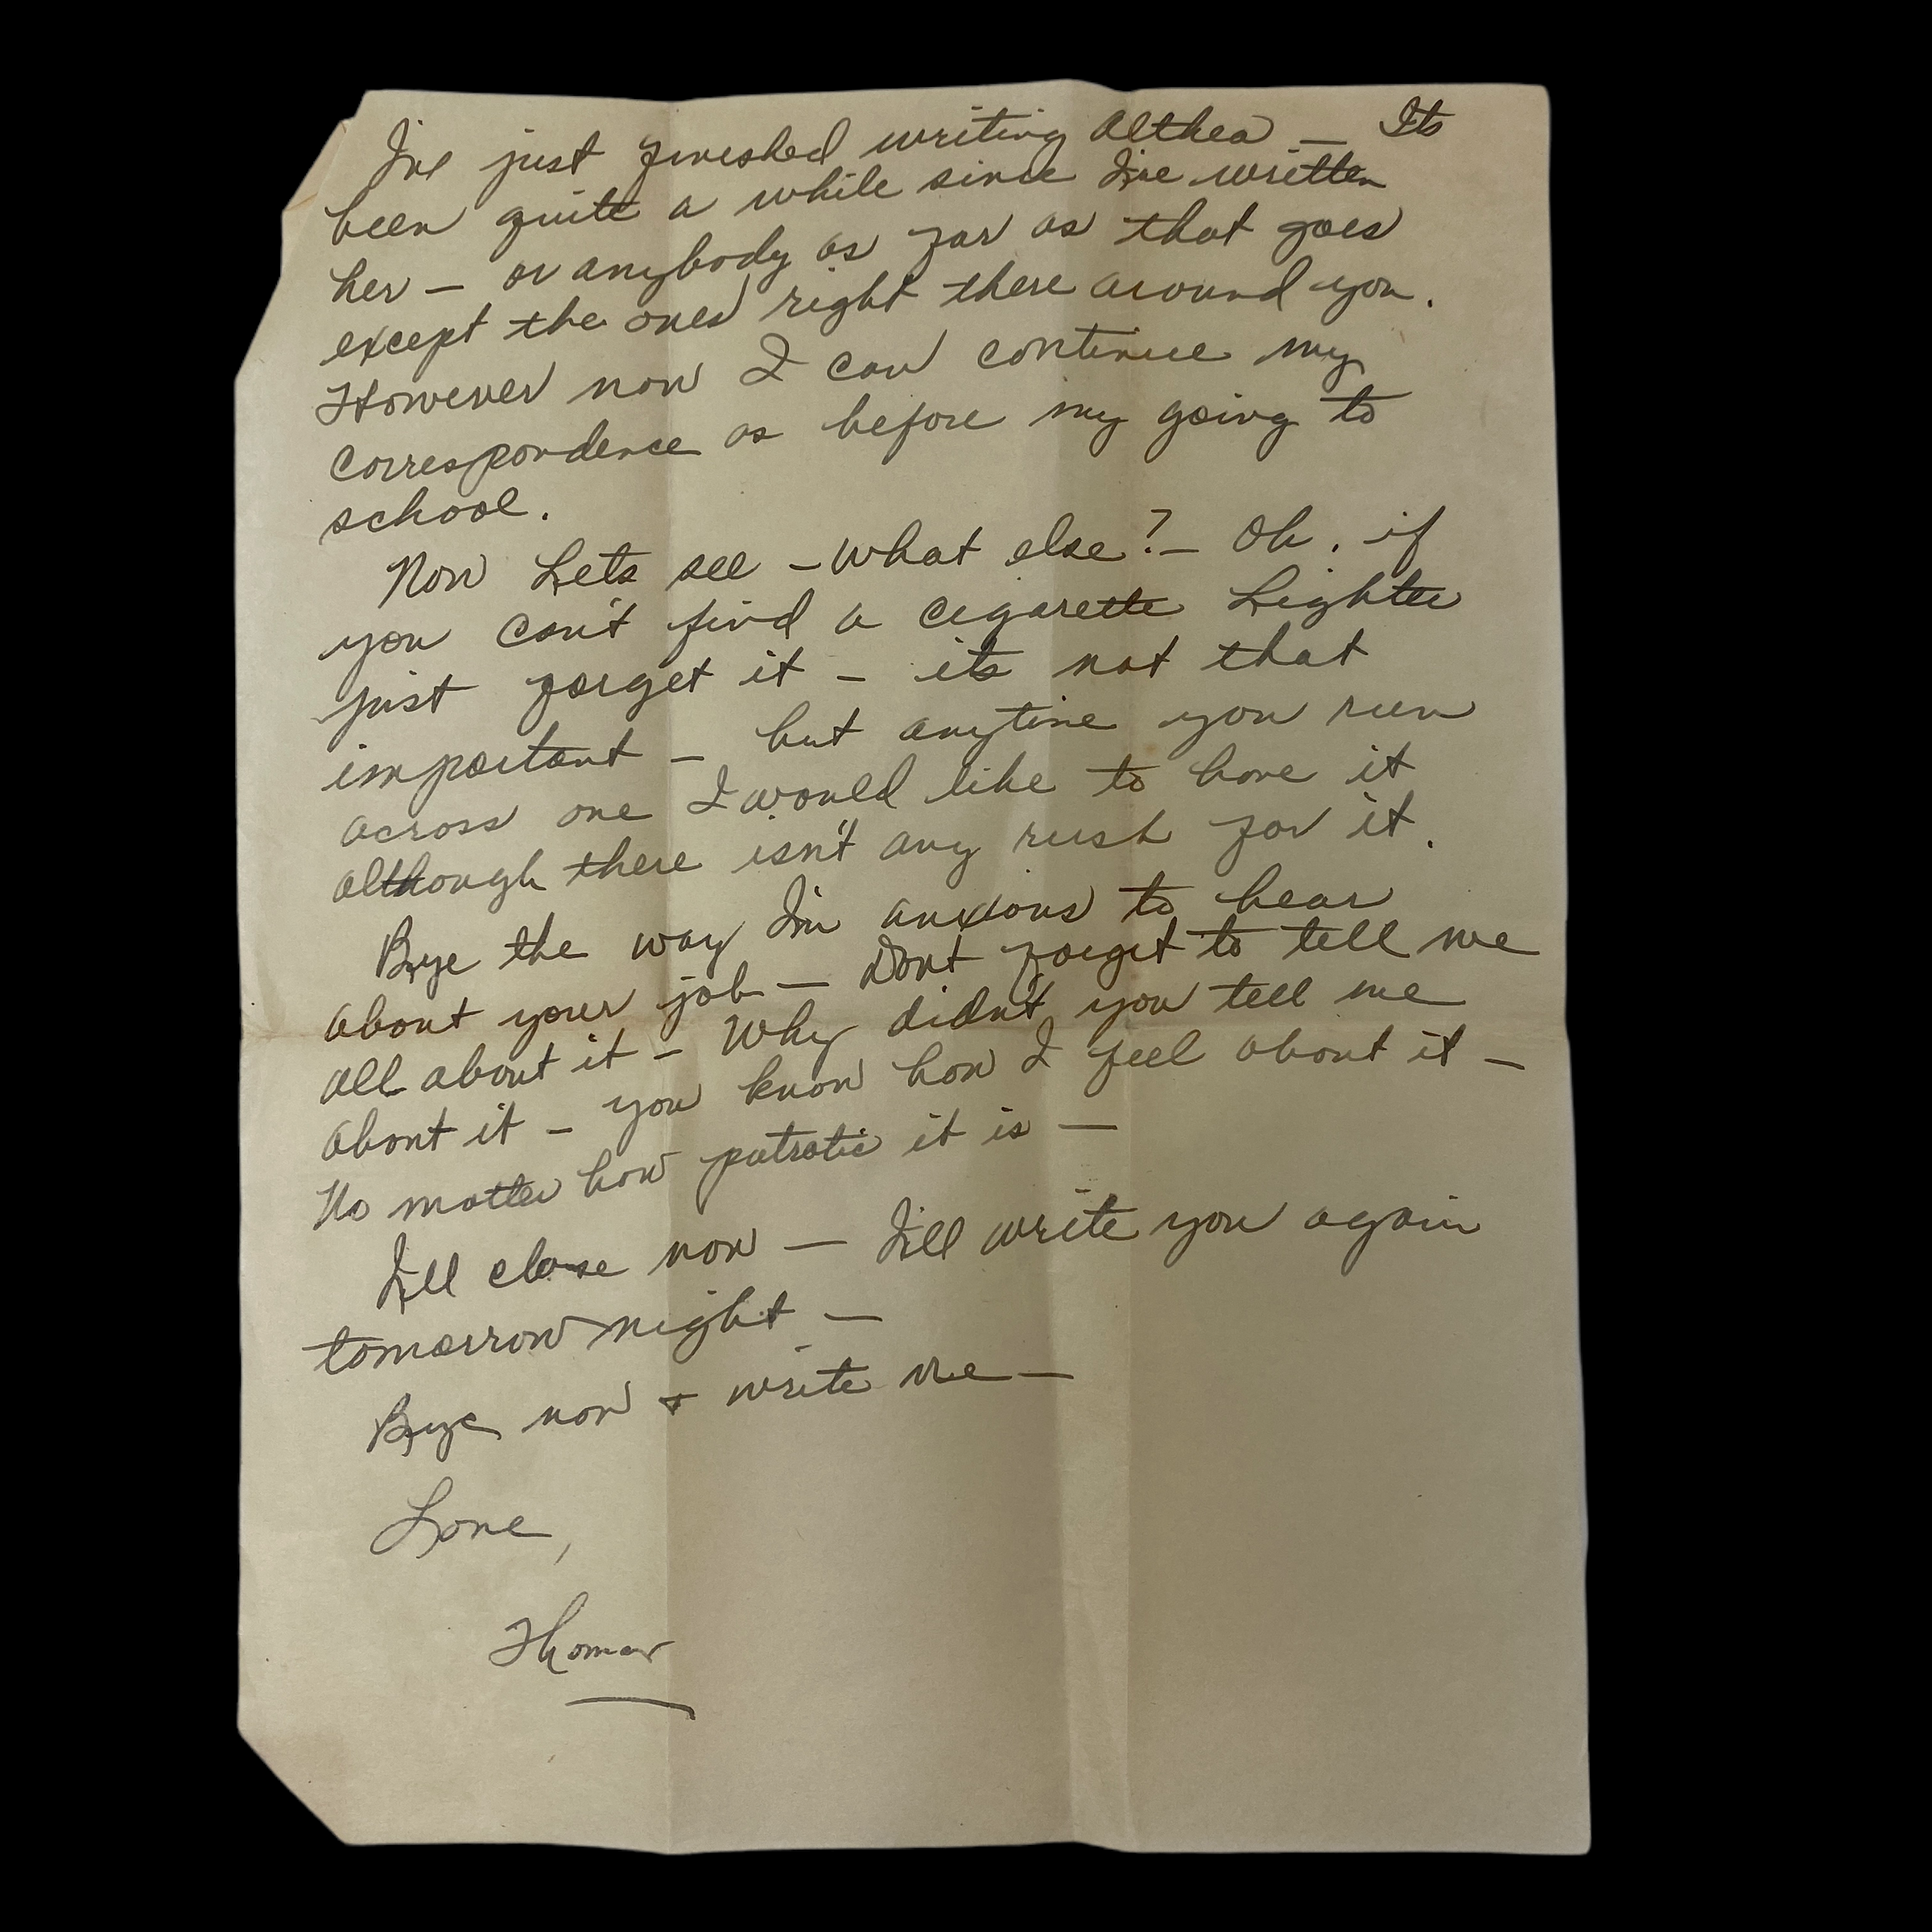 I've just finished writing Althea — Its
been quite a while since I've written
her — or anybody as far as that goes
except the ones right there around you.
However now I can continue my
correspondence as before my going to
school.
Now Lets see — what else? — Oh, if
you can't find a cigarette Lighter
just forget it — its not that
important — but anytime you run
across one I would like to have it
although there isn't any rush for it.
Bye the way I'm anxious to hear
about your job — Dont forget to tell me
all about it — Why didn't you tell me
about it — you know how I feel about it —
No matter how patrotic it is —
I'll close now — I'll write you again
tomorrow night —
Bye now & write me —
Love,
Thomas